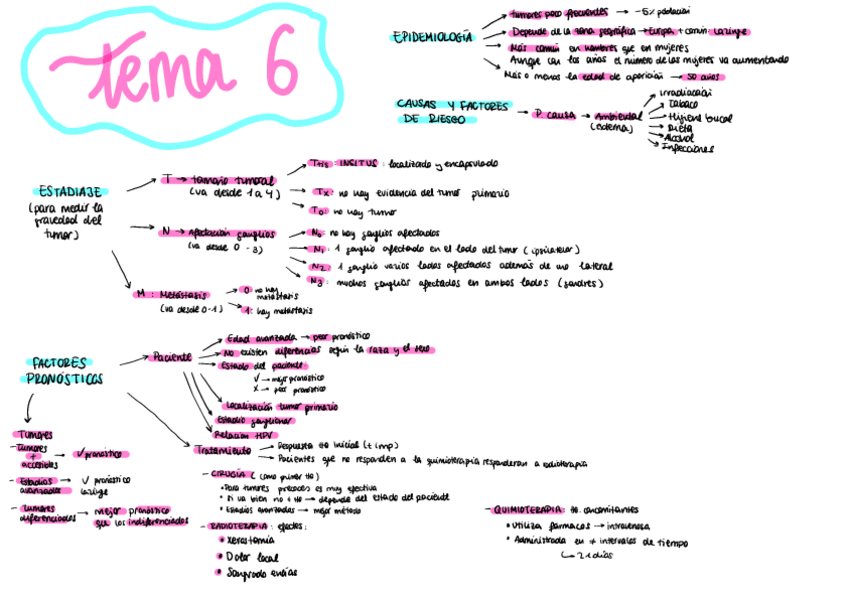 Tema 6
EPIDEMIOLOGÍA
tumores poco frecuentes → -5% población
Depende de la zona geográfica → Europa + común laringe
Más común en hombres que en mujeres
Aunque con los años el número de las mujeres va aumentando
Más o menos la edad de aparición → 50 años
CAUSAS Y FACTORES
DE RIESGO
→ P. causa → Ambiental
(externa)
Irradiación
Tabaco
Higiene bucal
Dieta
Alcohol
Infecciones
ESTADIAJE
(para medir la
gravedad del
tumor)
T → tamaño tumoral
(va desde 1 a 4)
Tis: INSITUS: localizado y encapsulado
Tx: no hay evidencia del tumor primario
T0: no hay tumor
N → Afectación ganglios
(va desde 0 - 3)
N0: no hay ganglios afectados
N1: 1 ganglio afectado en el lado del tumor (ipsilateral)
N2: 1 ganglio varios lados afectados además de uno lateral
N3: muchos ganglios afectados en ambos lados (grandes)
M: Metástasis
(va desde 0-1)
0: no hay
metástasis
1: hay metástasis
FACTORES
PRONÓSTICOS
Paciente
Edad avanzada → peor pronóstico
No existen diferencias según la raza y el sexo
Estado del paciente
✓ → mejor pronóstico
x → peor pronóstico
Localización tumor primario
Estadio ganglionar
Relación HPV
Tumores
- Tumores
+
accesibles
→ ✓ pronóstico
- Estadios
avanzados
→ ✓ pronóstico
laringe
- Tumores
diferenciados
→ mejor pronóstico
que los indiferenciados
Tratamiento
Respuesta tto inicial (+ imp)
Pacientes que no responden a la quimioterapia responderán a radioterapia
- CIRUGÍA (como primer tto)
• Para tumores precoces es muy efectiva
• Si va bien no + tto → depende del estado del paciente
• Estadios avanzados → mejor método
- RADIOTERAPIA: efectos:
• Xerostomía
• Dolor local
• Sangrado encías
- QUIMIOTERAPIA: tto. concomitantes
• Utiliza fármacos → intravenosa
• Administrada en + intervalos de tiempo
↳ 21 días